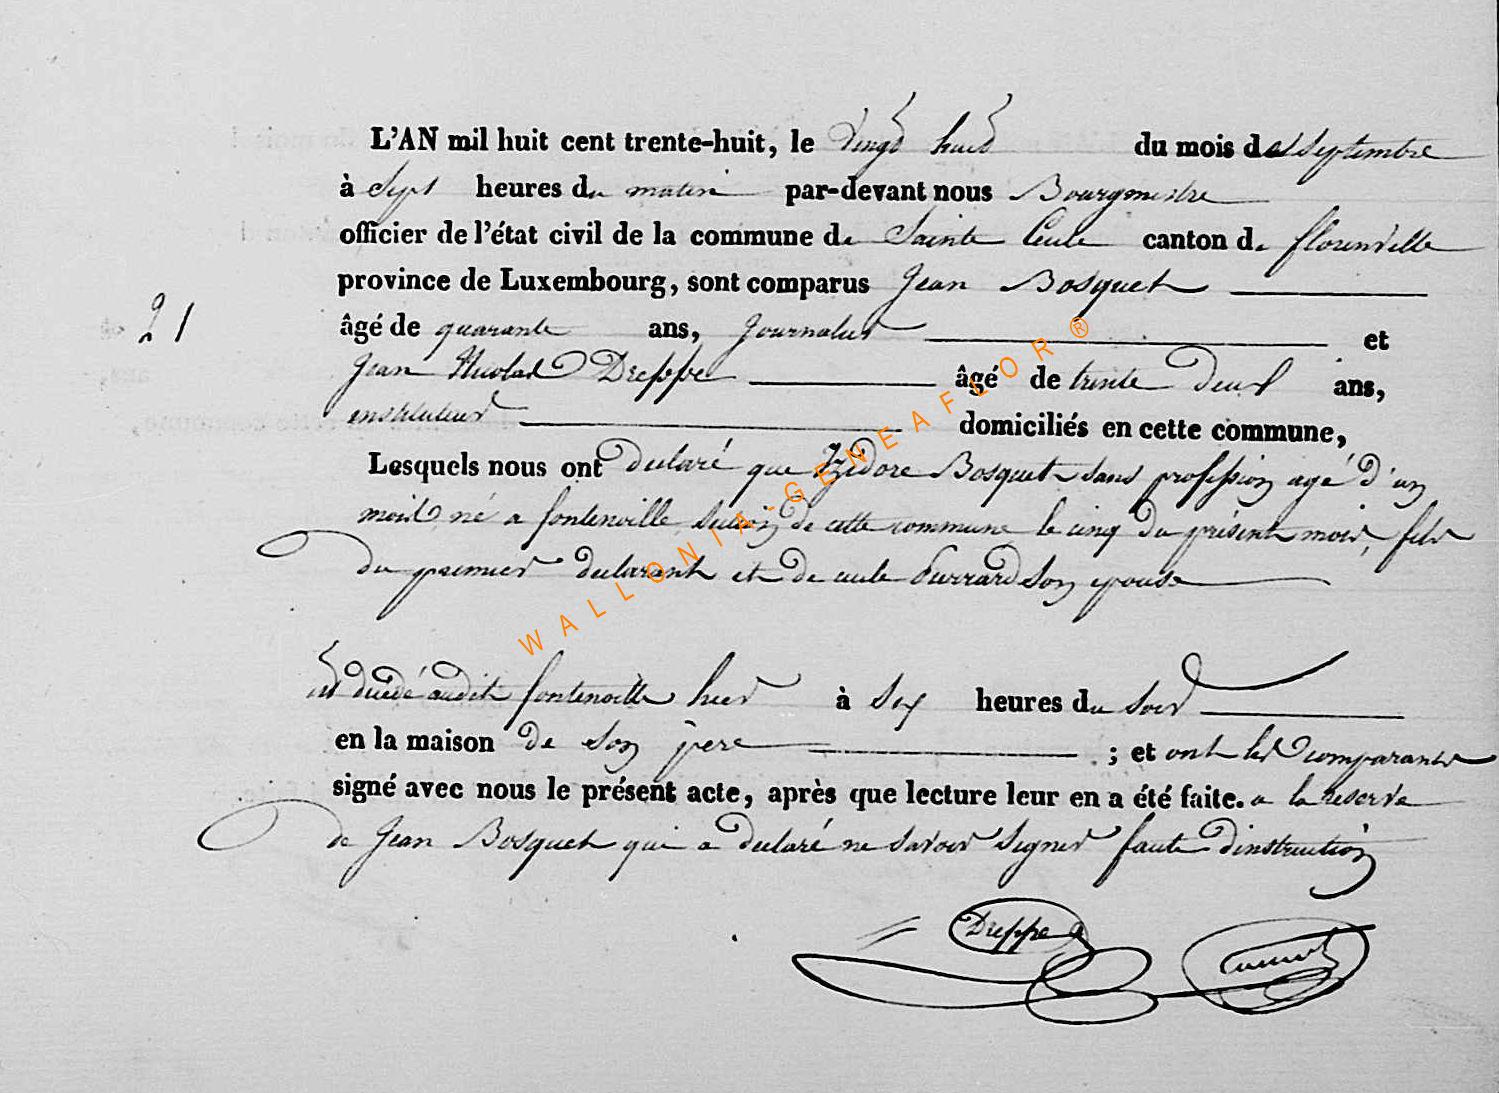 L'AN mil huit cent trente-huit, le vingt huit du mois de septembre
à sept heures du matin par-devant nous Bourgmestre
officier de l'état civil de la commune de Sainte Cecile canton de florenville
province de Luxembourg, sont comparus Jean Bosquet
21
âgé de quarante ans, Journalier et
Jean Nicolas Dreppe âgé de trente deux ans,
instituteur domiciliés en cette commune,
Lesquels nous ont declaré que Izidore Bosquet sans profession agé d'un
mois né a fontenoille section de cette commune le cinq du présent mois, fils
du premier declarant et de son epouse
est decédé audit fontenoille hier à six heures du soir
en la maison de son pere ; et ont les comparants
signé avec nous le présent acte, après que lecture leur en a été faite. a la reserve
de Jean Bosquet qui a declaré ne savoir signer faute d'instruction
Dreppe
WALLONIA-GENEAFLOR®